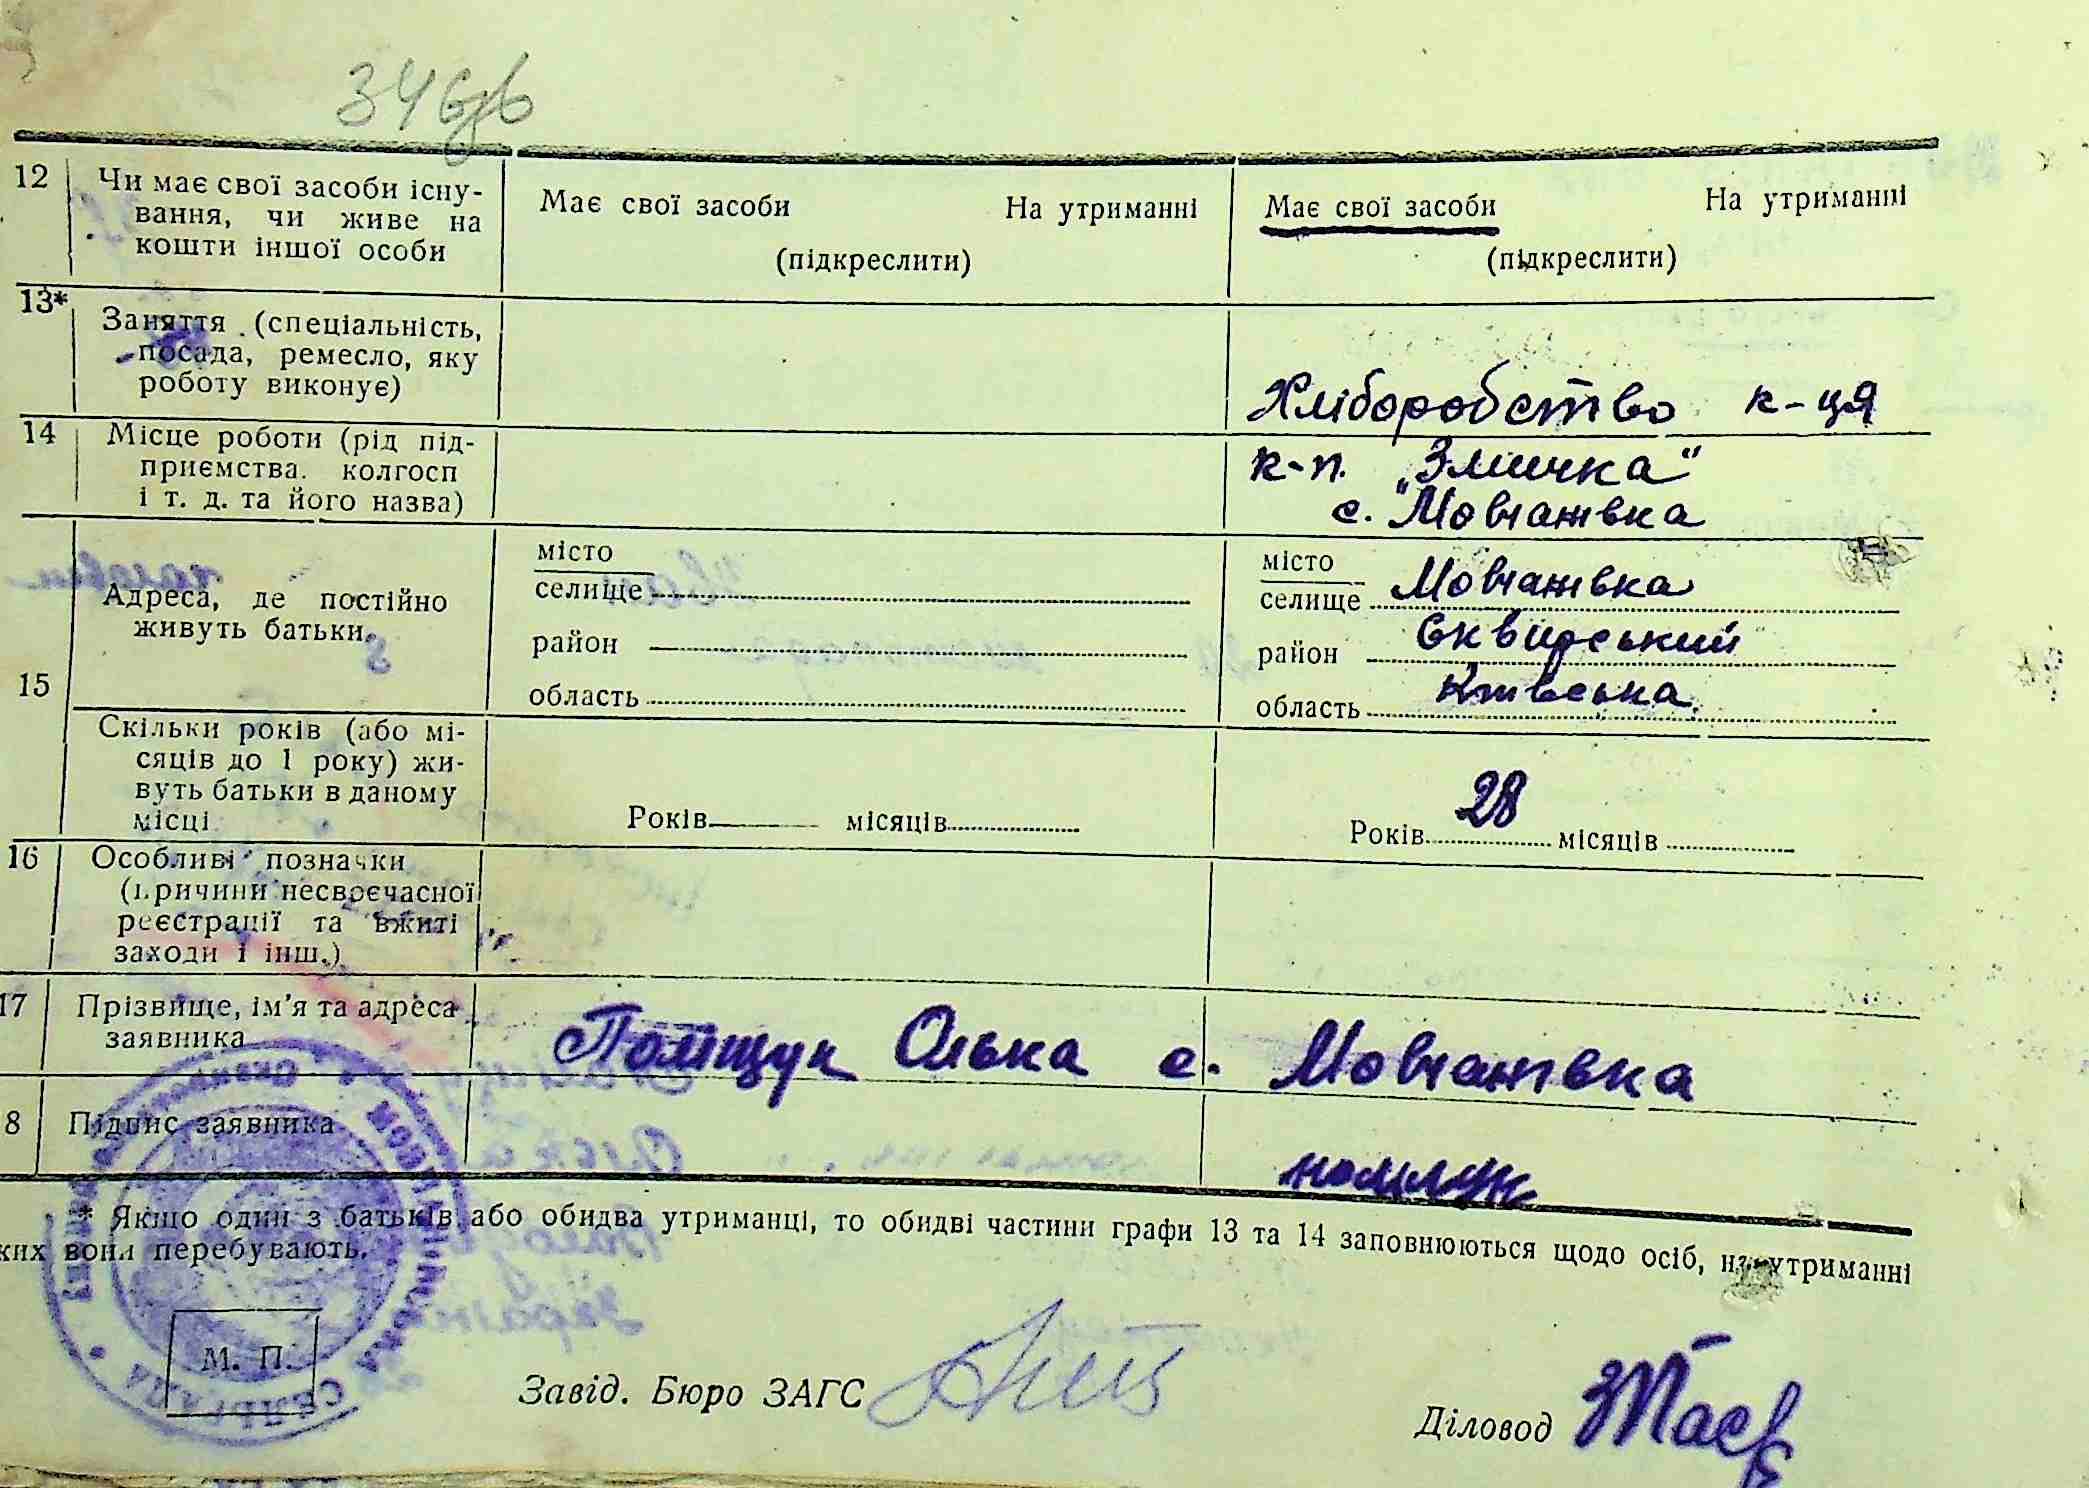 34 зв
12 Чи має свої засоби існу-
вання, чи живе на
кошти іншої особи
Має свої засоби На утриманні
(підкреслити)
Має свої засоби На утриманні
(підкреслити)
13* Заняття (спеціальність,
посада, ремесло, яку
роботу виконує)
Хліборобство к-ця
14 Місце роботи (рід під-
приємства. колгосп
і т. д. та його назва)
к-п. „Змичка"
с. Мовчанівка
15
Адреса, де постійно
живуть батьки.
місто
селище
район
область
місто
селище Мовчанівка
район Сквирський
область Київська.
Скільки років (або мі-
сяців до 1 року) жи-
вуть батьки в даному
місці
Років місяців
Років 28 місяців
16 Особливі позначки
(причини несвоєчасної
реєстрації та вжиті
заходи і інш.)
17 Прізвище, ім'я та адреса
заявника
Поліщук Олька с. Мовчанівка
8 Підпис заявника
* Якщо один з батьків або обидва утриманці, то обидві частини графи 13 та 14 заповнюються щодо осіб, на утриманні
ких вони перебувають.
М. П.
Завід. Бюро ЗАГС
Діловод